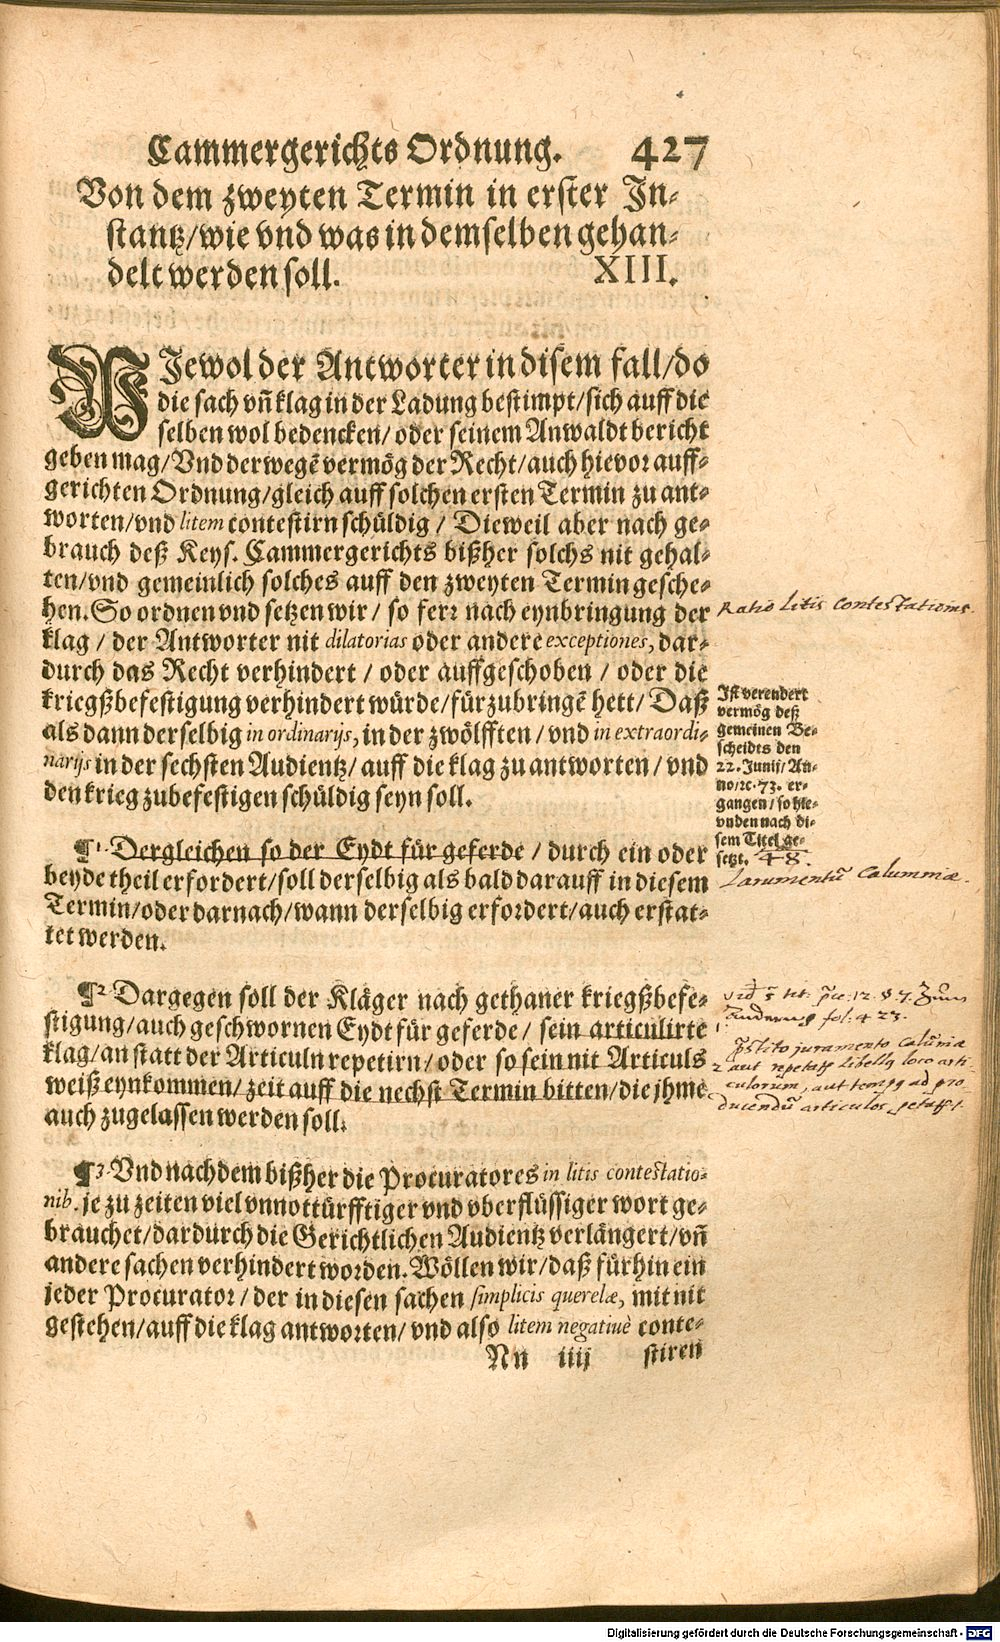 Cammergerichts Ordnung. 427
Von dem zweyten Termin in erster In-
stantz/wie vnd was in demselben gehan-
delt werden soll. XIII.
WJewol der Antworter in disem fall/do
die sach vñ klag in der Ladung bestimpt/sich auff die
selben wol bedencken/oder seinem Anwaldt bericht
geben mag/Vnd derwegẽ vermög der Recht/auch hievor auff-
gerichten Ordnung/gleich auff solchen ersten Termin zu ant-
worten/vnd litem contestirn schüldig / Dieweil aber nach ge-
brauch deß Keys. Cammergerichts bißher solchs nit gehal-
ten/vnd gemeinlich solches auff den zweyten Termin gesche-
hen. So ordnen vnd setzen wir / so ferr nach eynbringung der
klag / der Antworter nit dilatorias oder andere exceptiones, dar-
durch das Recht verhindert / oder auffgeschoben / oder die
kriegßbefestigung verhindert würde/fürzubringẽ hett/ Daß
als dann derselbig in ordinarijs, in der zwölfften / vnd in extraordi-
narijs in der sechsten Audientz/ auff die klag zu antworten / vnd
den krieg zubefestigen schüldig seyn soll.
Ratio Litis Contestationis.
Ist verendert
vermög deß
gemeinen Be-
scheidts den
22. Junij/ An-
no/ꝛc. 73. er-
gangen / so hie-
vnden nach di-
sem Titel ge-
setzt. 48.
¶1. Dergleichen so der Eydt für geferde / durch ein oder
beyde theil erfordert/soll derselbig als bald darauff in diesem
Termin/oder darnach/wann derselbig erfordert/auch erstat-
tet werden.
Calumniæ.
¶2. Dargegen soll der Kläger nach gethaner kriegßbefe-
stigung/auch geschwornen Eydt für geferde/ sein articulirte
klag/an statt der Articuln repetirn/oder so sein nit Articuls
weiß eynkommen/ zeit auff die nechst Termin bitten/die jhme
auch zugelassen werden soll.
fol. 423.
juramento
aut libellũ loco arti-
culorum, aut ad pro-
ducendũ articulos
¶3. Vnd nachdem bißher die Procuratores in litis contestatio-
nib. je zu zeiten viel vnnottürfftiger vnd vberflüssiger wort ge-
brauchet/dardurch die Gerichtlichen Audientz verlängert/vñ
andere sachen verhindert worden. Wöllen wir/daß fürhin ein
jeder Procurator / der in diesen sachen simplicis querelæ, mit nit
gestehen/auff die klag antworten/ vnd also litem negatiuè conte-
Nn iiij stiren
Digitalisierung gefördert durch die Deutsche Forschungsgemeinschaft - DFG